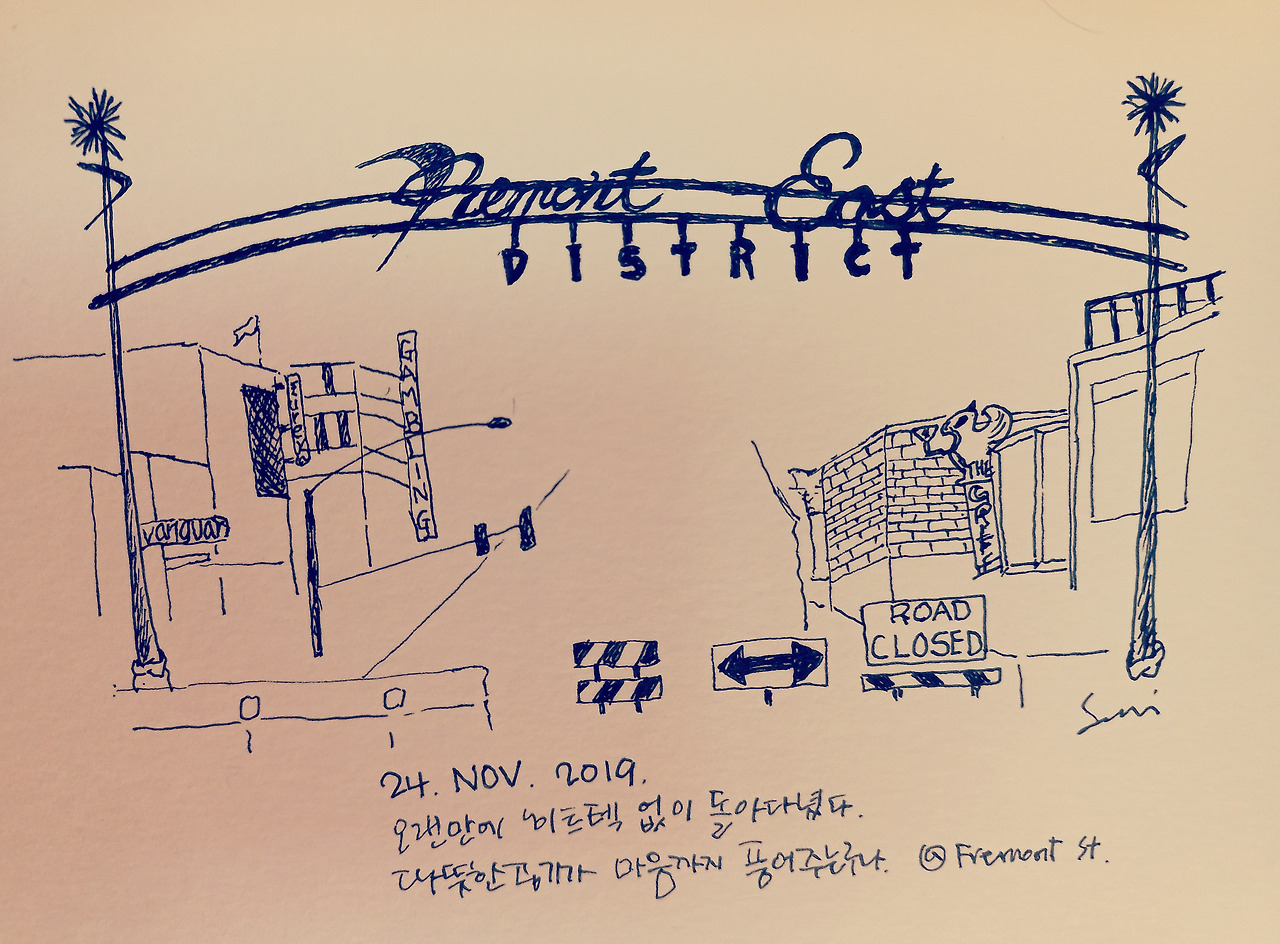 Fremont East
DISTRICT
GAMBLING
vanguar
THE
GRIFF
ROAD
CLOSED
24. NOV. 2019.
오랜만에 히트텍 없이 돌아다녔다.
따뜻한 공기가 마음까지 품어주는구나. @ Fremont St.